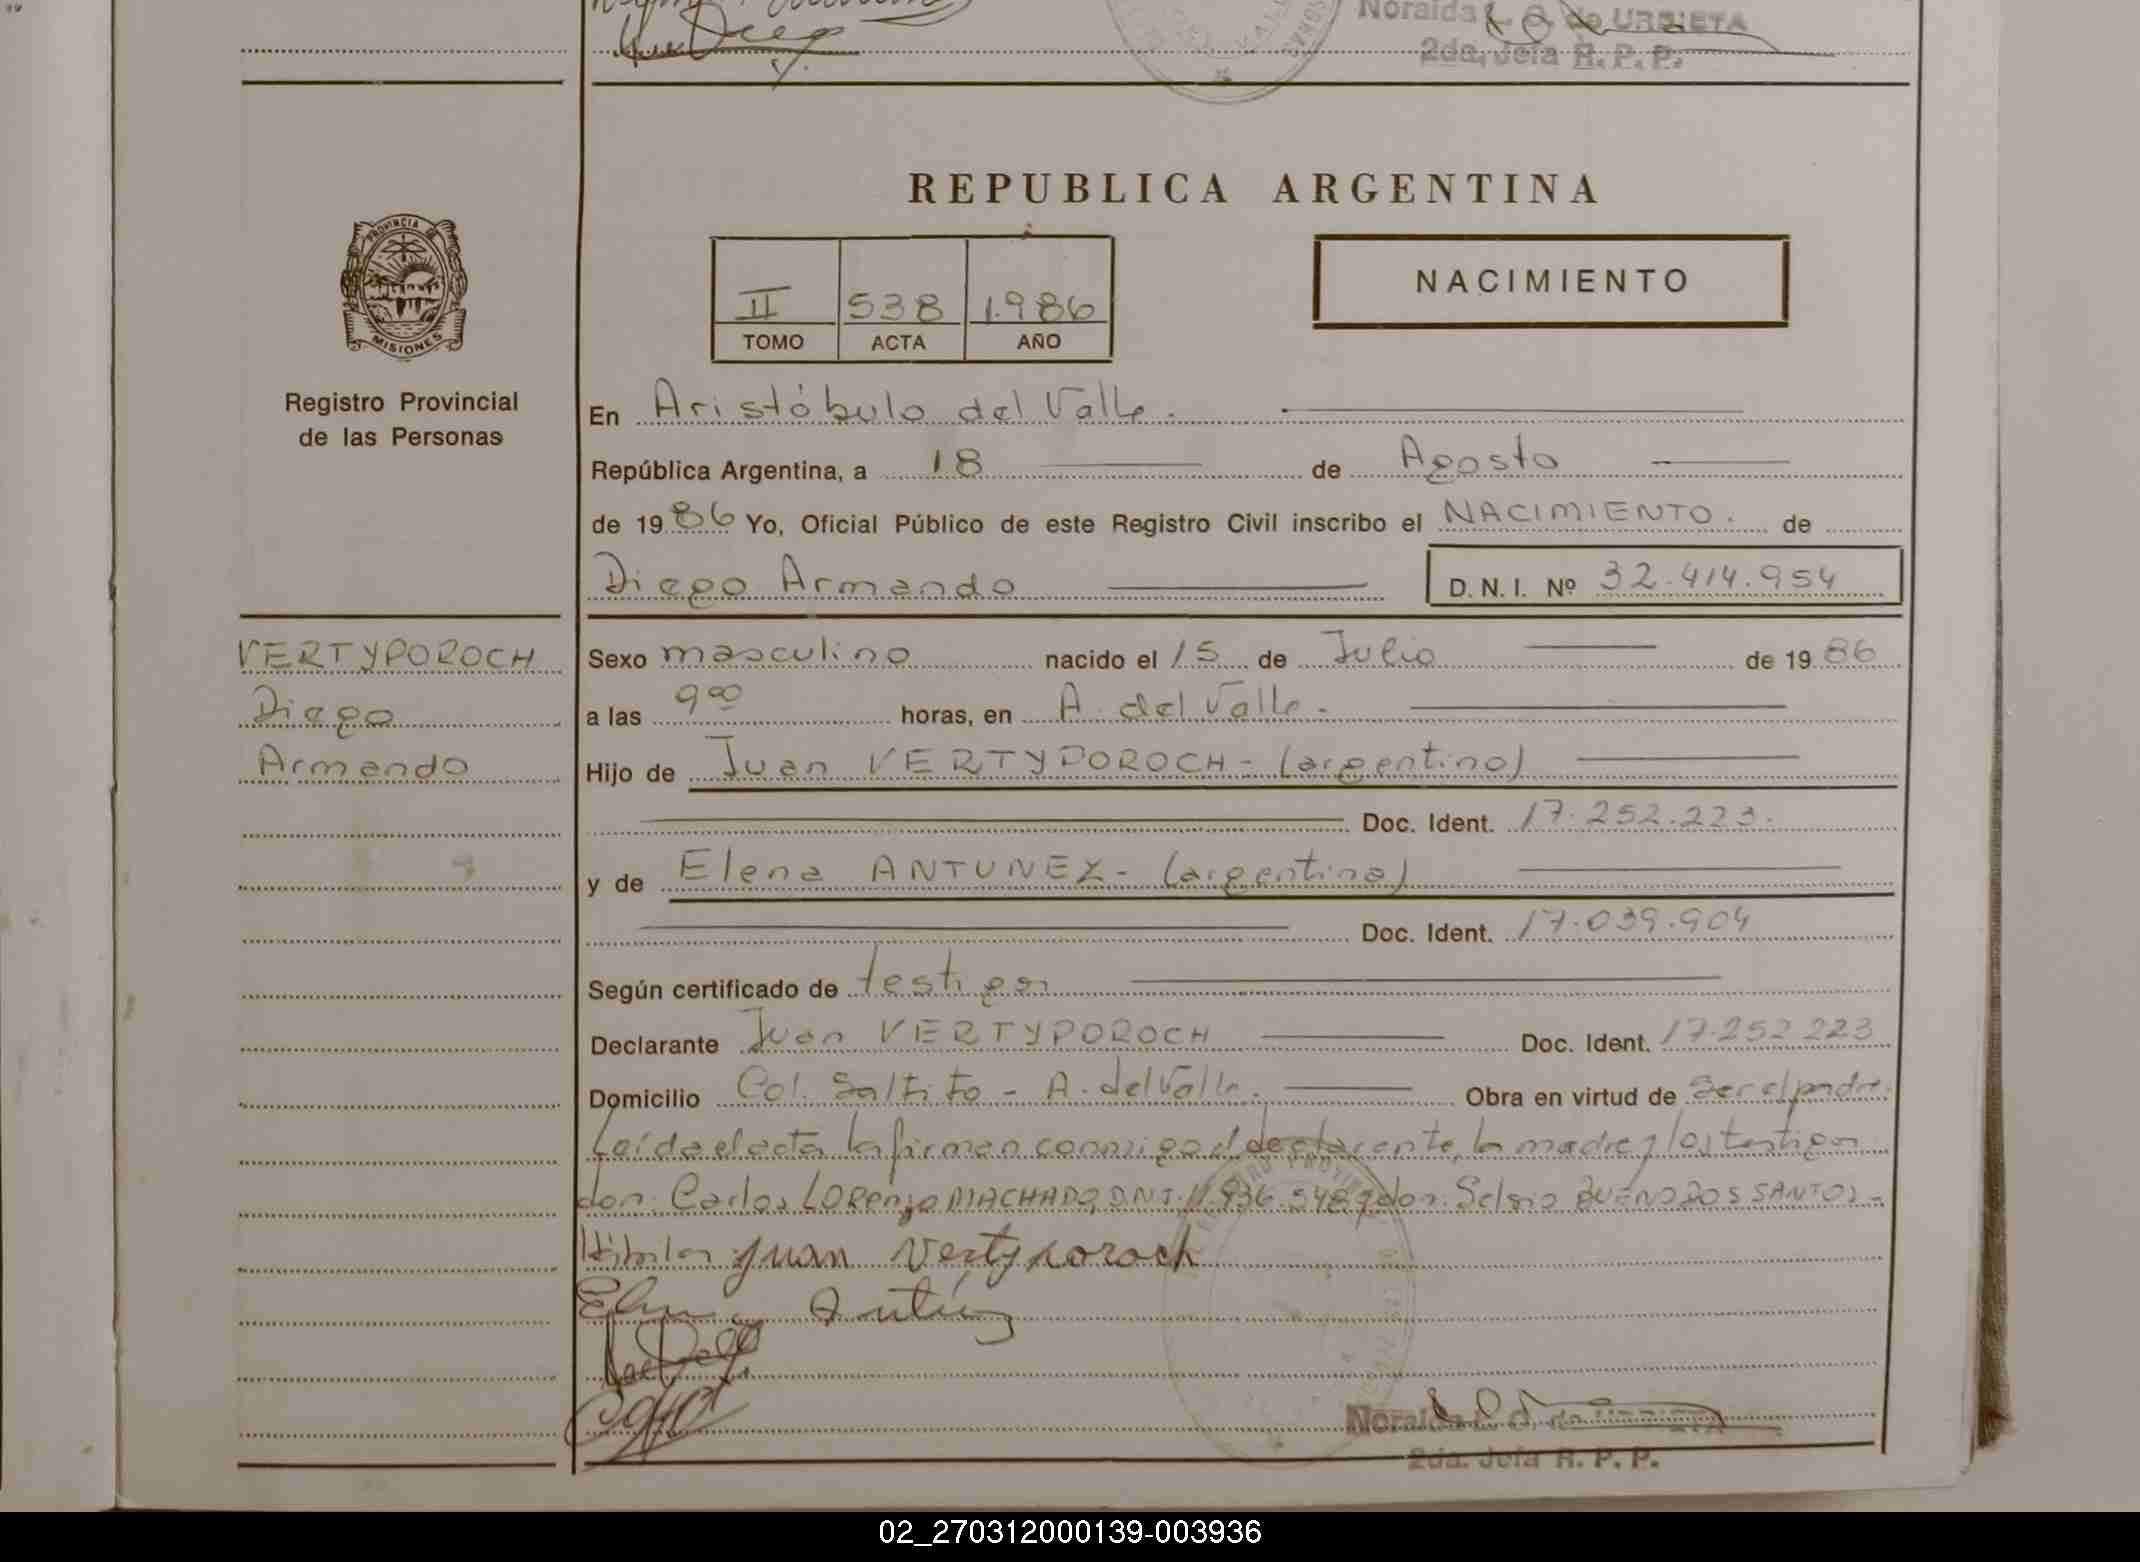 Noraida L. O. de URBIETA
2da. Jefa R. P. P.
REPUBLICA ARGENTINA
PROVINCIA DE
MISIONES
Registro Provincial
de las Personas
II 538 1.986
TOMO ACTA AÑO
NACIMIENTO
En Aristóbulo del Valle.
República Argentina, a 18 de Agosto
de 1986 Yo, Oficial Público de este Registro Civil inscribo el NACIMIENTO. de
Diego Armando D. N. I. Nº 32.414.954
VERTYPOROCH
Diego
Armando
Sexo masculino nacido el 15 de Julio de 1986
a las 9 00 horas, en A. del Valle.
Hijo de Juan VERTYPOROCH - (argentino)
Doc. Ident. 17.252.223.
y de Elena ANTUNEZ - (argentina)
Doc. Ident. 17.039.904
Según certificado de testigos
Declarante Juan VERTYPOROCH Doc. Ident. 17.252 223
Domicilio Col. Saltito - A. del Valle. Obra en virtud de ser el padre.
Leída el acta la firman conmigo el declarante, la madre y los testigos
don: Carlos LORENZO MACHADO, D.N.I. 11.936.548 y don: Selsio BUENO DOS SANTOS -
Hábiles Juan Vertyporoch
Elena Antúnez
Noraida L. O. de
2da. Jefa R. P. P.
02_270312000139-003936